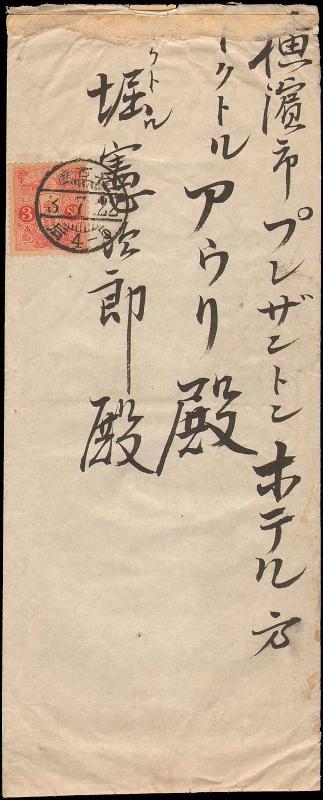 横濱市プレザントンホテル方
ークトルアウリ殿
クトル
堀憲次郎殿
3
3.7.22